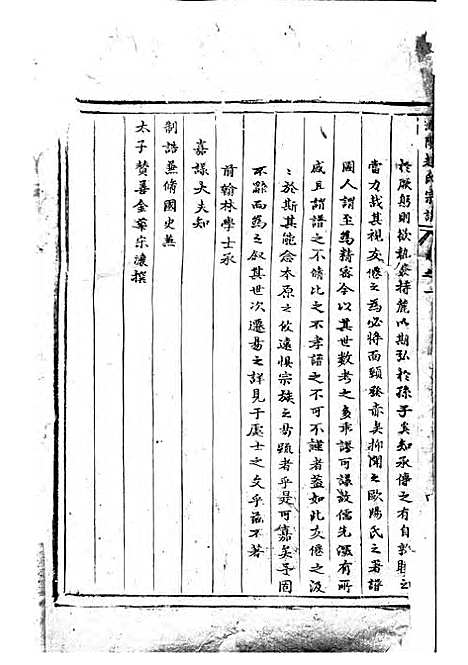 於厥躬則欲執委持麓以期弘於孫子矣知承傳之有自敦彝之
當力哉其視亥倦之為必將面頸發赤矣抑聞之歐陽氏之著譜
國人謂至為精密今以其世數考之多乖謬可議故儒先濕有所
感且謂譜之不脩比之不孝譜之不可不謹者蓋如此亥倦之汲
於斯其能念本原之攸遠惧宗族之者乎是可嘉矣予固
不辭而為之叙其世次遷易之詳見于處士之文乎茲不著
嘉議大夫知
前翰林學士承
制誥兼脩國史兼
太子贊善金華宋濂撰
趙氏宗譜